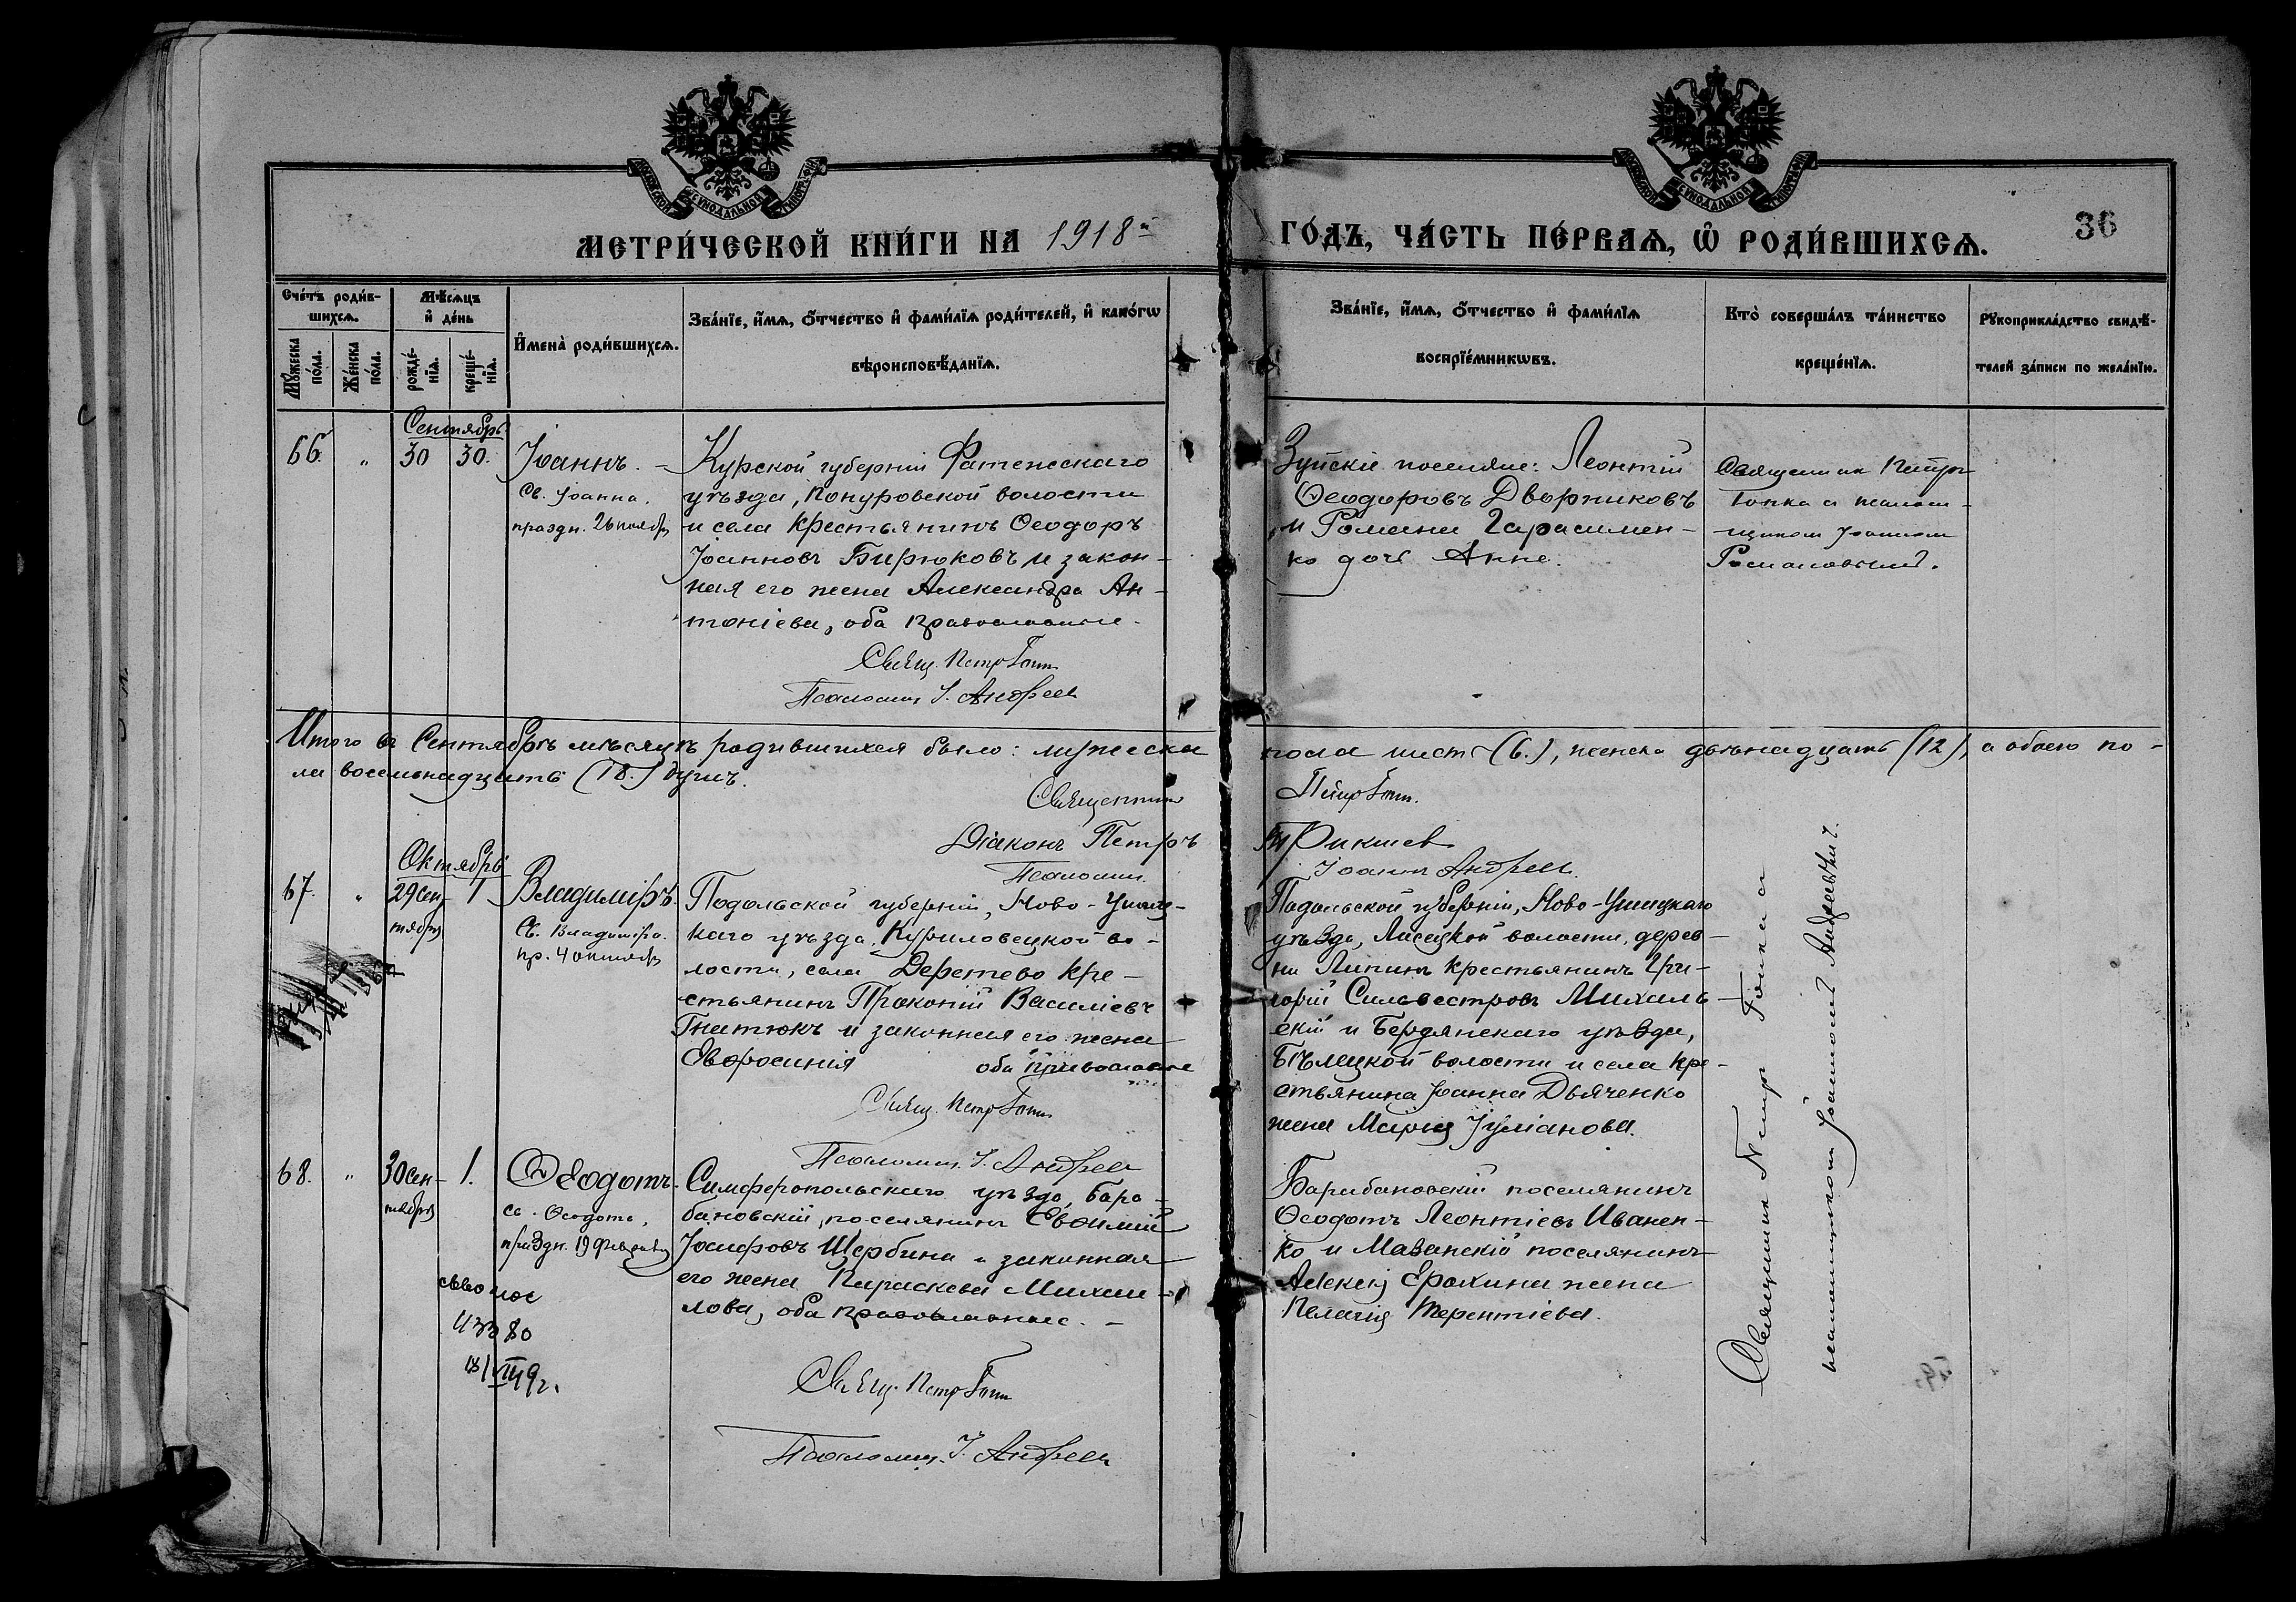 МЕТРИ́ЧЕСКОЙ КНИ́ГИ НА 1918й
ГО́ДЪ, ЧА́СТЬ ПЕ́РВАѦ, Ѽ РОДИ́ВШИХСѦ.
36
Сче́тъ роди́в-
шихсѧ.
Мѣ́сѧцъ
и҆ де́нь
И҆мена̀ роди́вшихсѧ.
Зва́нїе, и҆́мѧ, ѻ҆́тчество и҆ фами́лїѧ роди́телей, и҆ како́гѡ
вѣроисповѣ́данїѧ.
Мꙋ́жеска
по́ла.
Же́нска
по́ла.
рожде́-
нїѧ.
креще́-
нїѧ.
Зва́нїе, и҆́мѧ, ѻ҆́тчество и҆ фами́лїѧ
воспрїе́мникѡвъ.
Кто̀ соверша́лъ та́инство
креще́нїѧ.
Рꙋкоприкла́дство свидѣ́-
телей за́писи по жела́нїю.
Сентябрь
66. " 30 30. Іоаннъ. –
Св. Іоанна,
праздн. 26 ноября
Курской губерніи Фатежскаго
уѣзда, волости
и села крестьянинъ Ѳеодоръ
Іоанновъ Бирюковъ и закон-
ная его жена Александра Ан-
тоніева, оба православные.
Свящ. Петръ
Псаломщ. І. Андреев
Зуйскіе поселяне: Леонтій
Ѳеодоровъ Дворниковъ
и Романа Гарасимен-
ко дочь Анна.
Священник Петръ
Попка и псалом-
щиком Іоанном
Итого въ Сентябрѣ мѣсяцѣ родившихся было: мужеска пола шесть (6.), женска двѣнадцать (12), а обоего по-
ла восемьнадцать (18.) душъ.
Священник Петръ
Діаконъ Петръ
Псаломщ. Іоанн Андреев.
Октябрь
67. " 29 Сен-
тября
1 Владиміръ.
Св. Владиміра.
пр. 4 октября
Подольской губерніи, Ново-Ушиц-
каго уѣзда, Куриловецкой во-
лости, села кре-
стьянинъ Прокопій Василіевъ
Гнатюкъ и законная его жена
Евфросинія оба православные
Свящ. Петръ
Псаломщ. І. Андреев
Подольской губерніи, Ново-Ушицкаго
уѣзда, волости, дерев-
ни крестьянинъ Гри-
горій Сильвестровъ Михаль-
скій и Бердянскаго уѣзда,
волости и села кре-
стьянина Іоанна Дьяченко
жена Марія Іуліанова.
Священник Петръ Попка и
псаломщиком Іоанном Андреевым.
68. " 30 Сен-
тября
1. Ѳеодотъ.
св. Ѳеодота,
праздн. 19 февраля
Симферопольскаго уѣзда, Бара-
бановскій поселянинъ Евѳимій
Іосифовъ Щербина и законная
его жена Параскева Михаи-
лова, оба православные. –
Свящ. Петръ
Псаломщ. І. Андреев
Барабановскій поселянинъ
Ѳеодотъ Леонтіевъ Иванен-
ко и Мазанскій поселянинъ
Алексій Ерохина жена
Пелагія Терентіева.